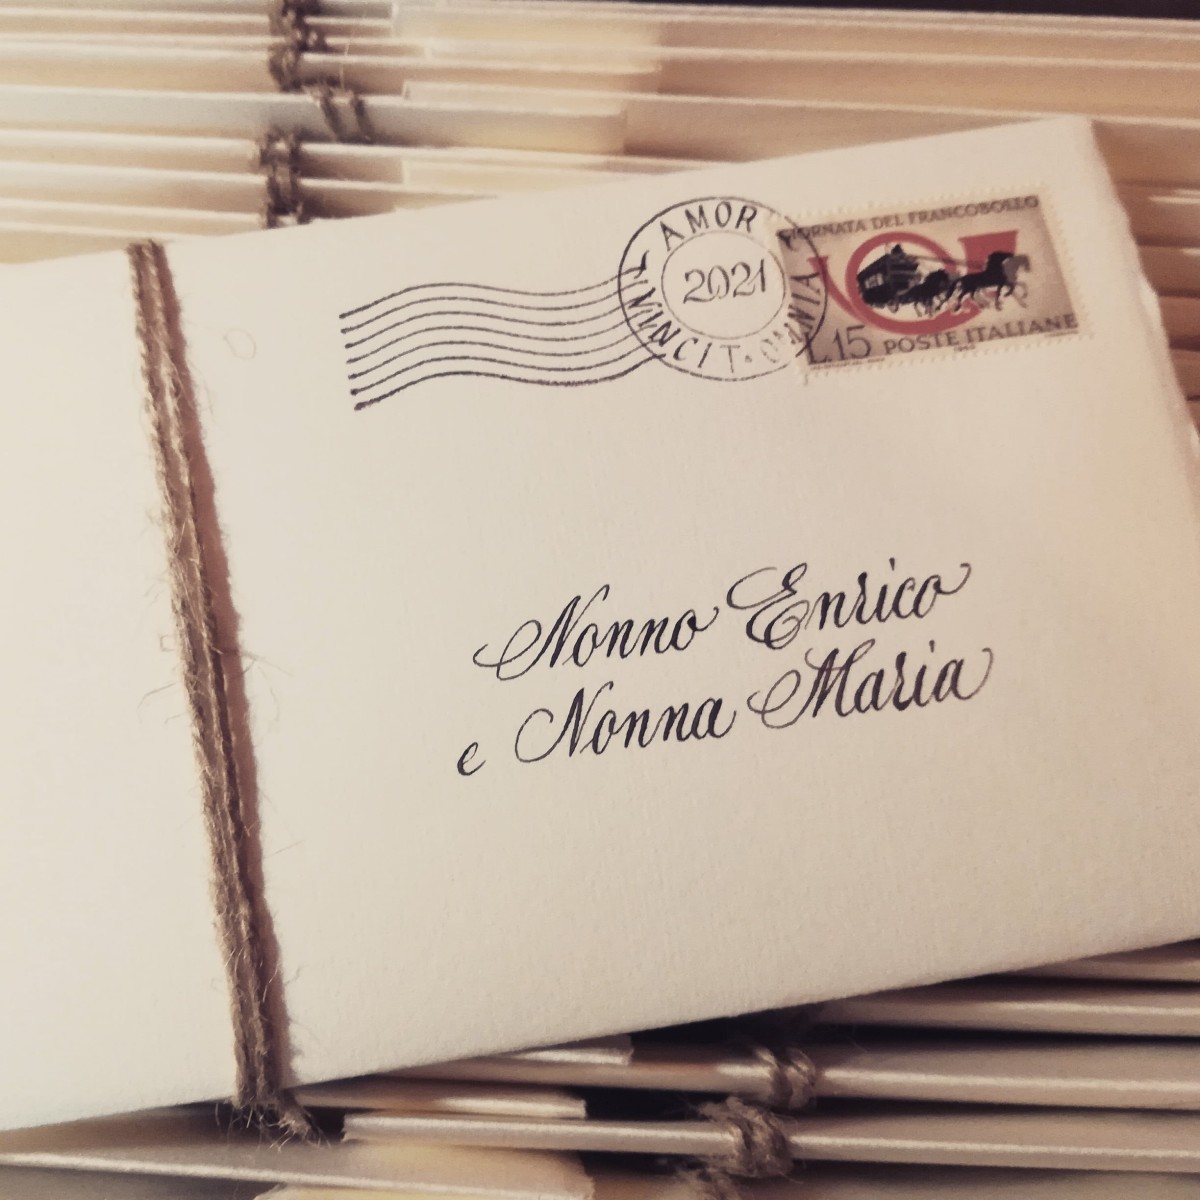 AMOR VINCIT OMNIA
2021
GIORNATA DEL FRANCOBOLLO
L.15 POSTE ITALIANE
Nonno Enrico
e Nonna Maria